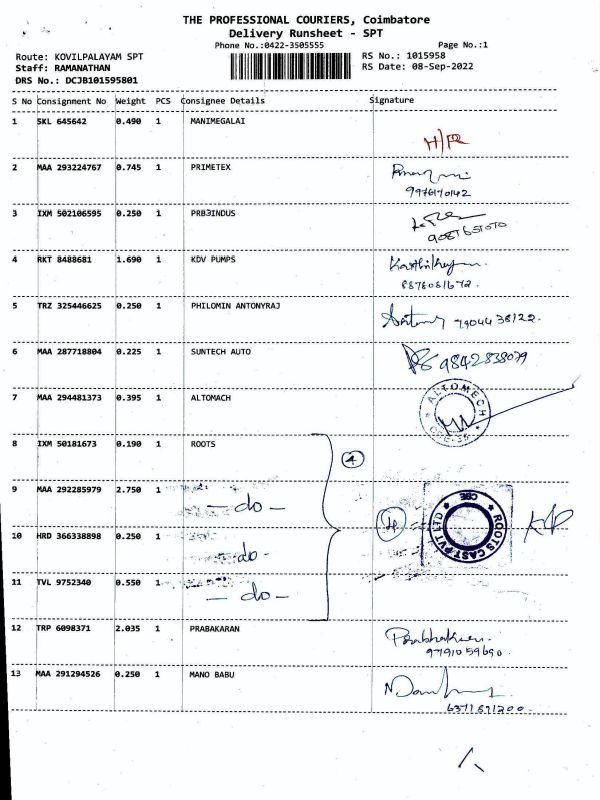 THE PROFESSIONAL COURIERS, Coimbatore
Delivery Runsheet - SPT
Phone No.:0422-3505555 Page No.:1
Route: KOVILPALAYAM SPT RS No.: 1015958
Staff: RAMANATHAN RS Date: 08-Sep-2022
DRS No.: DCJB101595801
S No Consignment No Weight PCS Consignee Details Signature
1 SKL 645642 0.490 1 MANIMEGALAI
H/R
2 MAA 293224767 0.745 1 PRIMETEX
9976170142
3 IXM 502106595 0.250 1 PRB3INDUS
4 RKT 8488681 1.690 1 KDV PUMPS
5 TRZ 325446625 0.250 1 PHILOMIN ANTONYRAJ
7904438122.
6 MAA 287718804 0.225 1 SUNTECH AUTO
9842838079
7 MAA 294481373 0.395 1 ALTOMACH
ALTOMECH
CBE-35
8 IXM 50181673 0.190 1 ROOTS
4
9 MAA 292285979 2.750 1 - do -
4 ROOTS CAST PVT LTD CBE
10 HRD 366338898 0.250 1 - do -
11 TVL 9752340 0.550 1 - do -
12 TRP 6098371 2.035 1 PRABAKARAN
Prabhakaran
9791059690.
13 MAA 291294526 0.250 1 MANO BABU
6371691200.